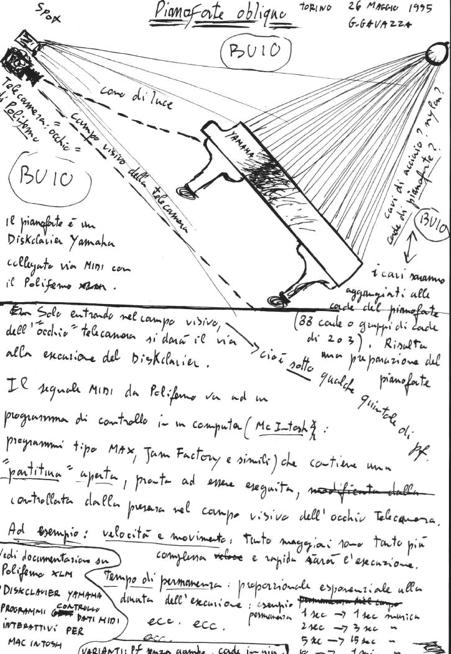 Pianoforte obliquo
TORINO 26 MAGGIO 1995
G. GAVAZZA
SPOT
BUIO
Telecamera: "occhio"
di Polifemo
cono di luce
campo visivo della telecamera
YAMAHA
cavi di acciaio? nylon?
corde di pianoforte?
BUIO
BUIO
Il pianoforte è un
Disklavier Yamaha
collegato via MIDI con
il Polifemo
i cavi saranno
agganciati alle
corde del pianoforte
(88 corde o gruppi di corde
di 2 o 3). Risulta
una preparazione del
pianoforte
Solo entrando nel campo visivo,
dell'"occhio" telecamera si darà il via
alla esecuzione del Disklavier.
cioè sotto qualche quintale di pf.
Il segnale MIDI da Polifemo va ad un
programma di controllo in un computer (Mc Intosh:
programmi tipo MAX, Jam Factory e simili) che contiene una
"partitura" aperta, pronta ad essere eseguita, modificata dalla
controllata dalla presenza nel campo visivo dell'occhio Telecamera.
Ad esempio: velocità e movimento: tanto maggiori sono tanto più
complessa e rapida sarà l'esecuzione.
Tempo di permanenza: proporzionale esponenziale alla
durata dell'esecuzione: esempio
permanenza 1 sec → 1 sec musica
2 sec → 3 sec "
5 sec → 15 sec "
ecc. ecc.
ecc.
Vedi documentazione su
Polifemo XLM
DISKLAVIER YAMAHA
PROGRAMMI CONTROLLO
DATI MIDI
INTERATTIVI PER
MAC INTOSH
VARIANTI: Pf senza gambe, coda in giù